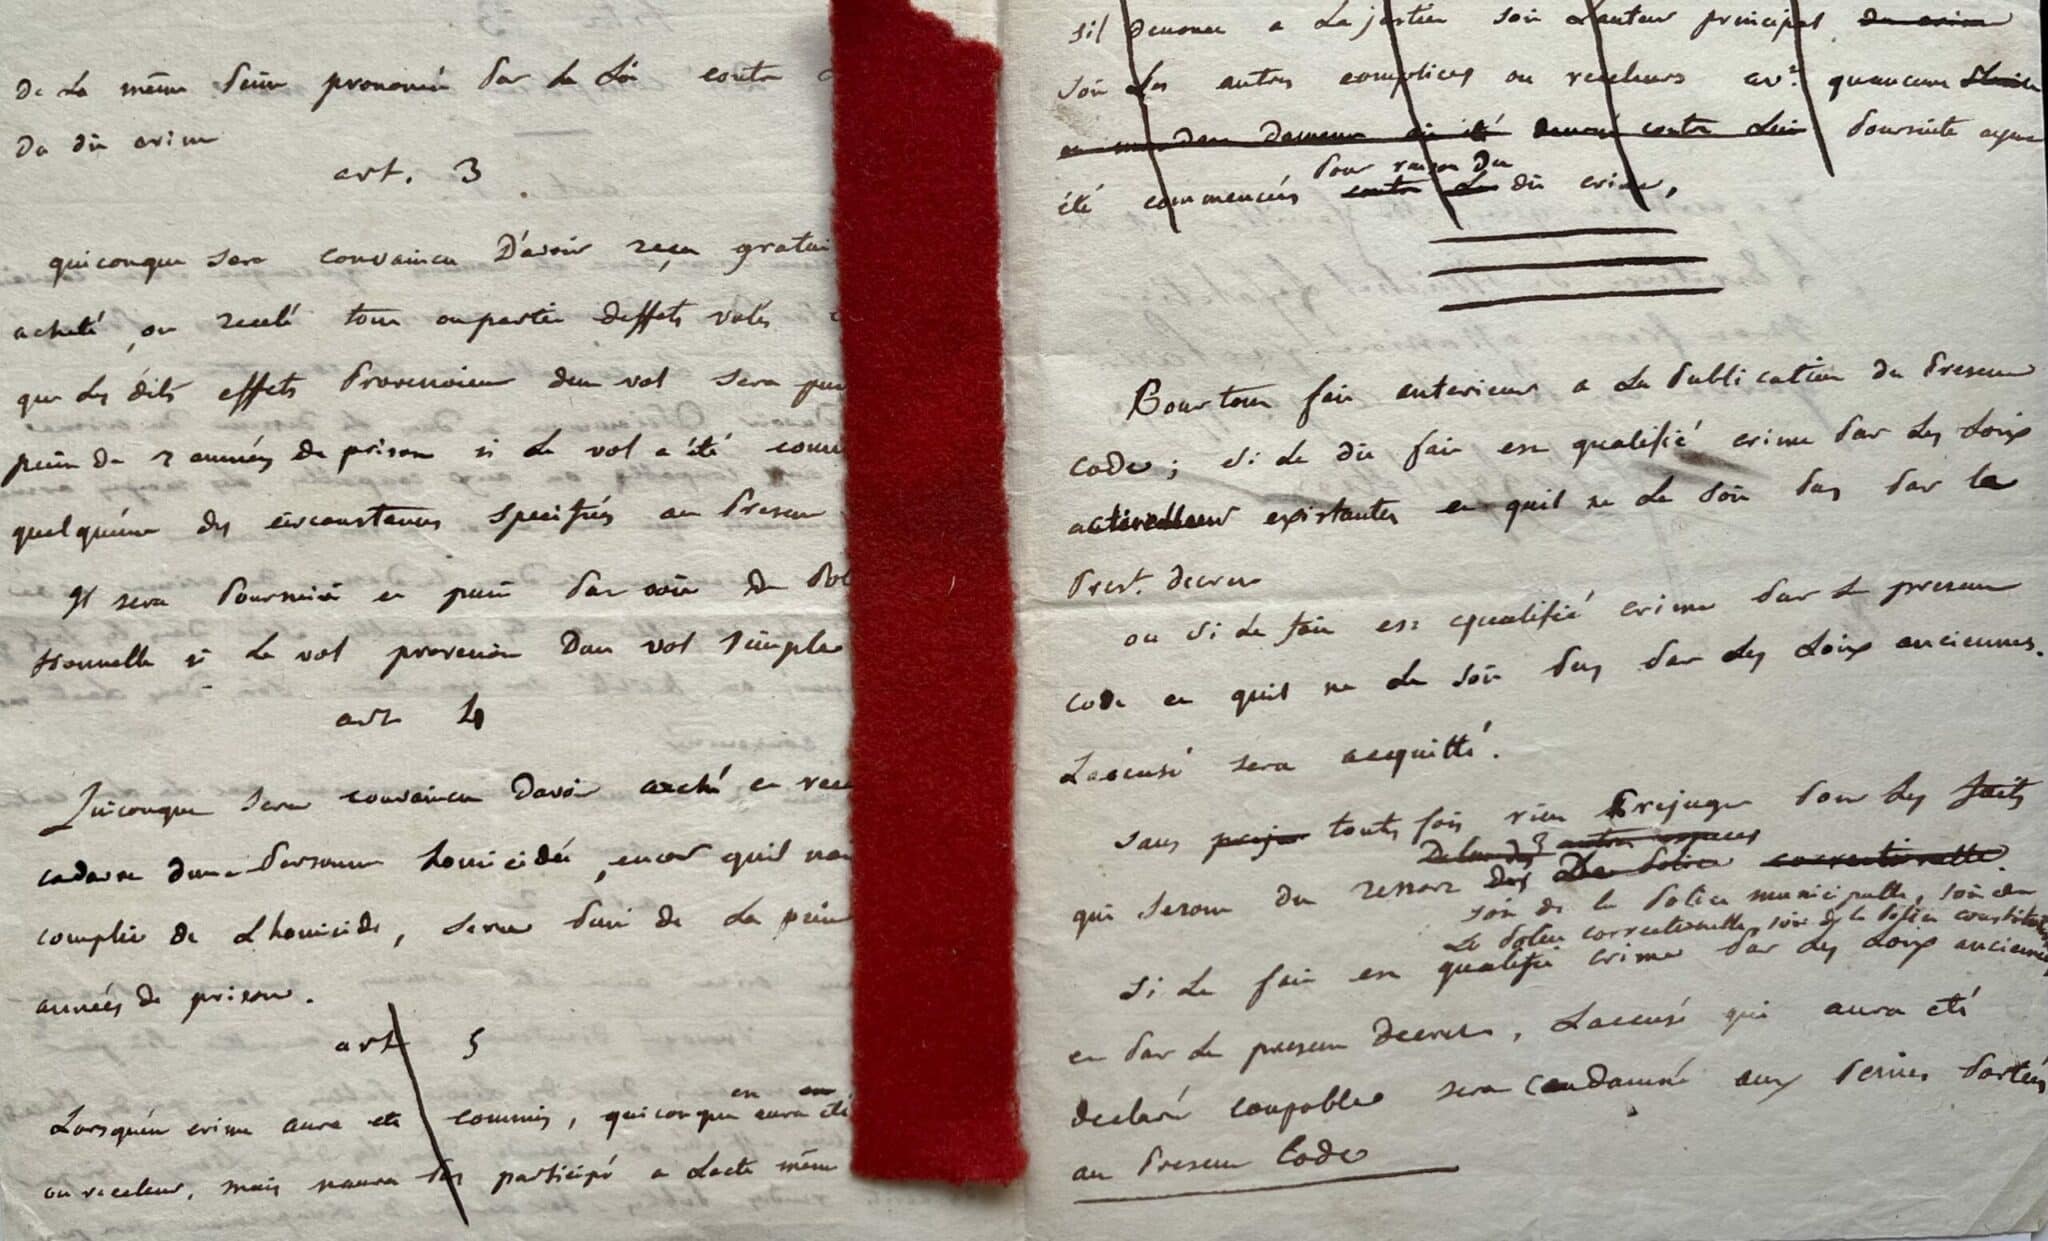 de la même peine prononcée par la Loi contre
du dit crime
art. 3
quiconque sera convaincu D'avoir reçu gratui
acheté, ou recelé tout ou partie d'effets volés
que les dits effets Provenoient d'un vol sera pu
peine de 2 années de prison si le vol a été com
quelqu'une des circonstances specifiées au Present
Il sera Poursuivi et puni par voie de Pol
tionnelle si le vol provenoit D'un vol simple
art 4
Quiconque sera convaincu D'avoir caché et rec
cadavre d'une Personne homicidée, encor qu'il nai
complice de L'homicide, sera Puni de la peine
années de prison.
art 5
Lorsqu'un crime aura eté commis, quiconque en aura été
ou receleur, mais n'aura pas participé a L'acte même
s'il denonce a La justice soit L'auteur principal du crime
soit Les autres complices ou receleurs avt qu'aucune
été denoncé contre Lui Poursuite ayent
été commencées pour raison du contre Le dit crime,
Pour tout fait anterieur a La Publication du Present
code; si Le dit fait est qualifié crime Par Les Loix
actuellement existantes et qu'il ne Le soit Pas Par le
Prest. decret
ou si Le fait est qualifié crime Par Le present
code et qu'il ne Le soit Pas Par Les Loix anciennes.
L'accusé sera acquitté.
sans toutes fois rien Prejuger Pour Les faits
qui seront du ressort des De La Police correctionelle.
soit de la Police municipalle, soit de
La Police correctionnelle, soit de la Police
Si Le fait est qualifié crime Par Les Loix anciennes
et Par Le present Decret, L'accusé qui aura eté
declaré coupable sera condamné aux Peines Portées
au Present Code